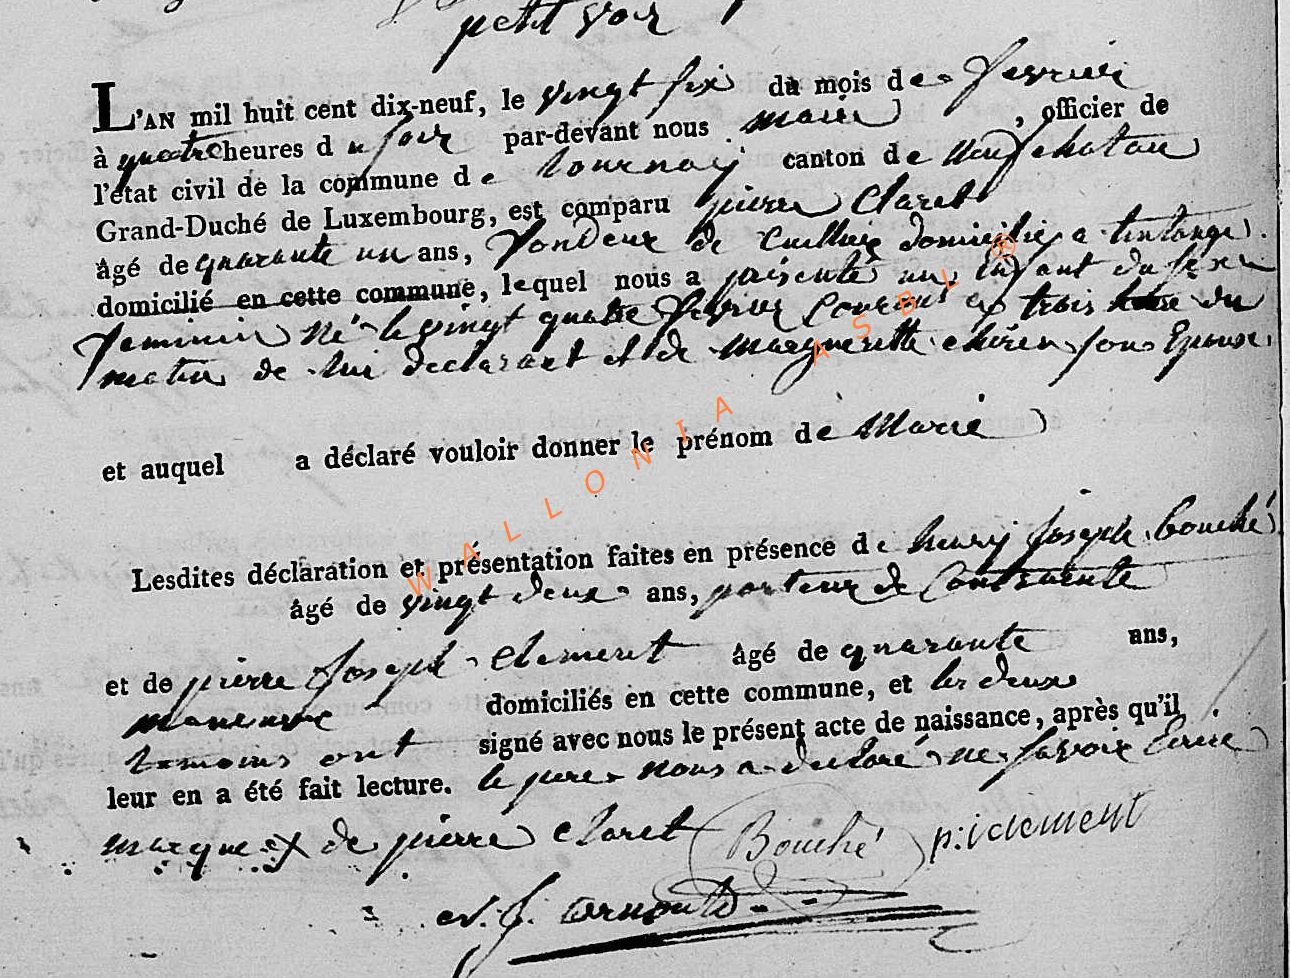 petit voir
L'AN mil huit cent dix-neuf, le vingt six du mois de fevrier
à quatre heures du soir par-devant nous maire, officier de
l'état civil de la commune de tournay canton de Neufchateau
Grand-Duché de Luxembourg, est comparu pierre Claret
âgé de quarante un ans, fondeur de Cuilliere domicilie a tintange.
domicilié en cette commune, lequel nous a présenté un Enfant du sexe
feminin né le vingt quatre fevrier Courant a trois heure du
matin de lui declarant et de Margueritte chiren son Epouse.
et auquel a déclaré vouloir donner le prénom de Marie
Lesdites déclaration et présentation faites en présence de henry Joseph Bouché
âgé de vingt deux ans, porteur de Contrainte
et de pierre Joseph Clement âgé de quarante ans,
manœuvre domiciliés en cette commune, et les deux
temoins ont signé avec nous le présent acte de naissance, après qu'il
leur en a été fait lecture. le pere nous a declaré ne savoir Ecrire
marque X de pierre Claret Bouché p:j clement
J. arnould
WALLONIA ASBL ®